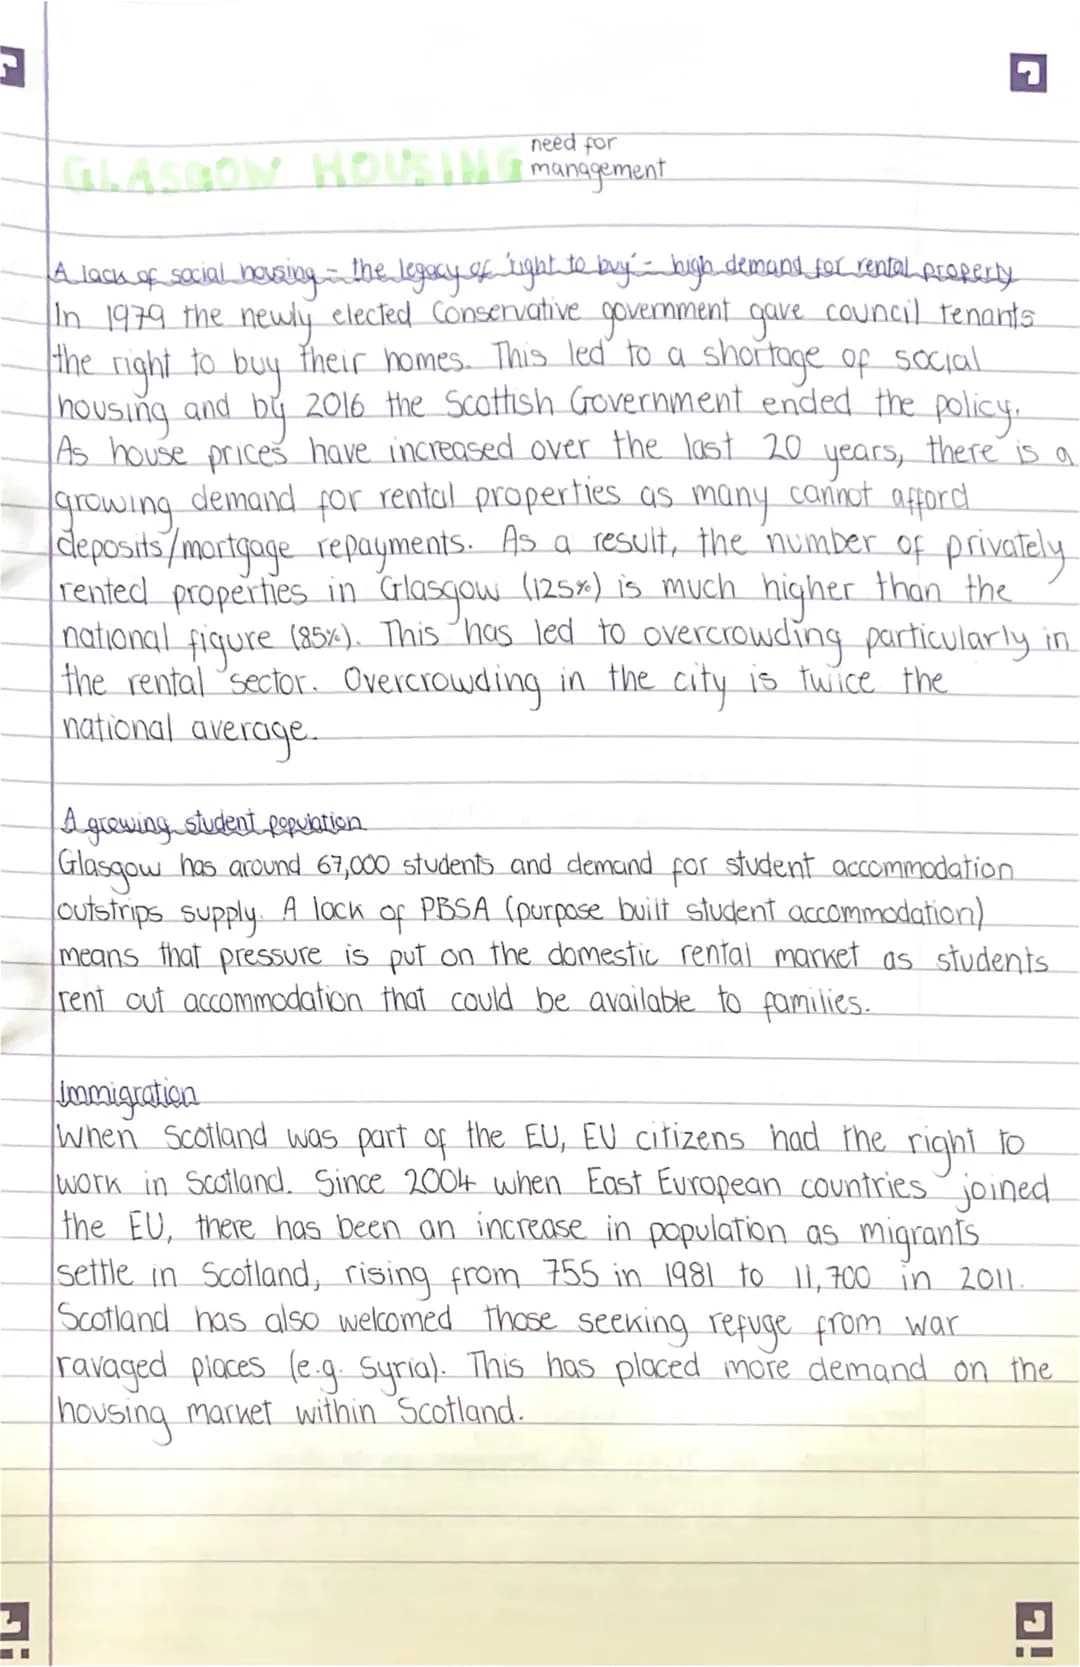 GLASGOW HOUSING need for
management
A lack of social housing - the legacy of 'right to buy' - high demand for rental property
In 1979 the newly elected Conservative government gave council tenants
the right to buy their homes. This led to a shortage of social
housing and by 2016 the Scottish Government ended the policy.
As house prices have increased over the last 20 years, there is a
growing demand for rental properties as many cannot afford
deposits/mortgage repayments. As a result, the number of privately
rented properties in Glasgow (125%) is much higher than the
national figure (85%). This has led to overcrowding particularly in
the rental sector. Overcrowding in the city is twice the
national average.
A growing student population
Glasgow has around 67,000 students and demand for student accommodation
outstrips supply. A lack of PBSA (purpose built student accommodation)
means that pressure is put on the domestic rental market as students
rent out accommodation that could be available to families.
Immigration
When Scotland was part of the EU, EU citizens had the right to
work in Scotland. Since 2004 when East European countries joined
the EU, there has been an increase in population as migrants
settle in Scotland, rising from 755 in 1981 to 11,700 in 2011.
Scotland has also welcomed those seeking refuge from war
ravaged places (e.g. Syria). This has placed more demand on the
housing market within Scotland.